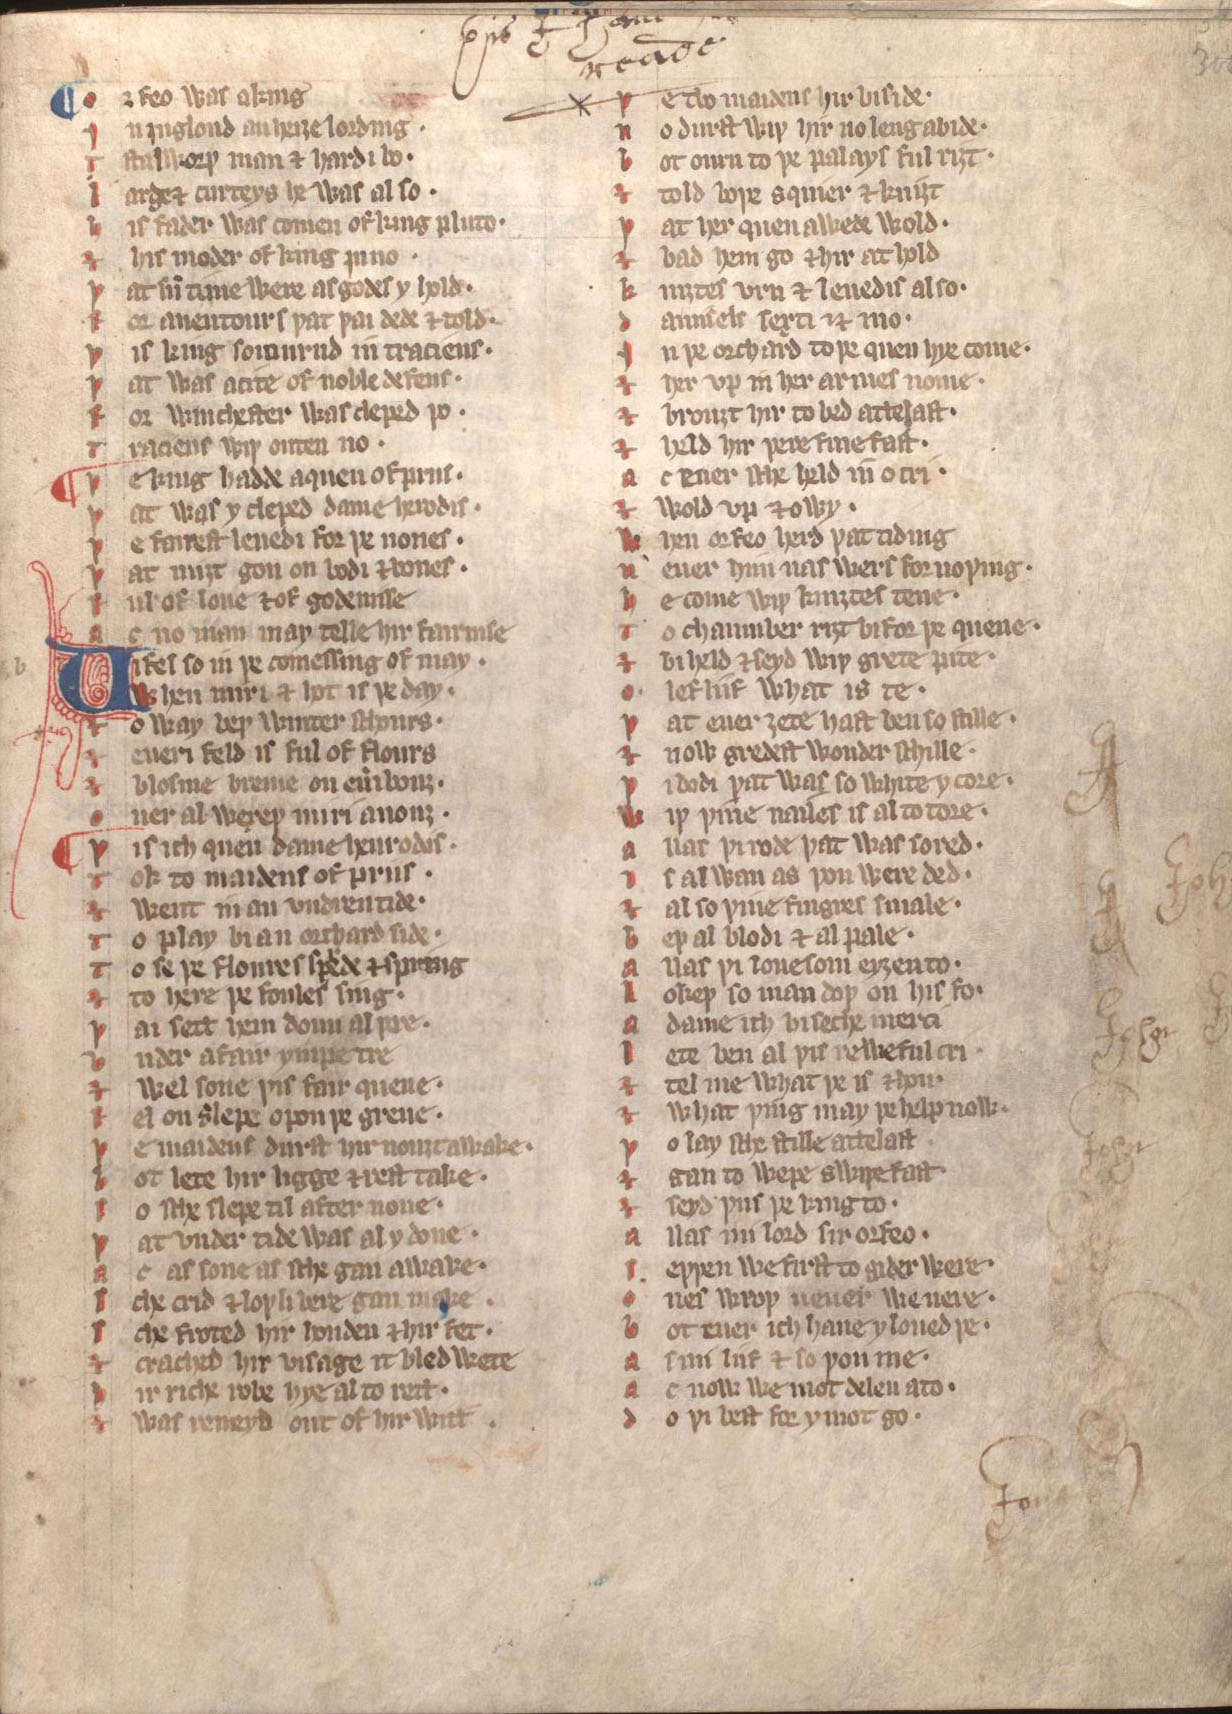 þis I haue
reade
Orfeo was a king
In Jnglond an heiȝe lording.
A stalworþ man & hardi bo.
Large & curteys he was al so.
His fader was comen of king pluto.
& his moder of king juno.
Þat sũ time were as godes y hold.
For auentours þat þai dede & told.
Þis king soiournd in traciens.
Þat was a cite of noble defens.
For Winchester was cleped þo.
Traciens wiþ outen no.
Þe king hadde a quen of priis.
Þat was y cleped dame herodis.
Þe fairest leuedi for þe nones.
Þat miȝt gon on bodi & bones.
Ful of loue & of godenisse
Ac no man may telle hir fairnise
Uifel so in þe comessing of may.
When miri & hot is þe day.
& o way beþ winter schours.
& eueri feld is ful of flours
& blosme breme on eũi bouȝ.
Ouer al wexeþ miri anouȝ.
Þis ich quen dame heurodis.
Tok to maidens of priis.
& went in an vndren tide.
To play bi an orchard side.
To se þe floures sprede & spring
& to here þe foules sing.
Þai sett hem doun al þre.
Vnder a fair ympe tre
& wel sone þis fair quene.
Fel on slepe opon þe grene.
Þe maidens durst hir nouȝt awake.
Bot lete hir ligge & rest take.
So sche slepe til after none.
Þat vnder tide was al y done.
Ac as sone as sche gan awake.
Sche crid & loþli bere gan make.
Sche froted hir honden & hir fet.
& crached hir visage it bled wete
Hir riche robe hye al to rett.
& was reueyd out of hir witt.
Þe two maidens hir biside.
No durst wiþ hir no leng abide.
Bot ourn to þe palays ful riȝt.
& told boþe squier & kniȝt
Þat her quen awede wold.
& bad hem go & hir at hold
Kniȝtes vrn & leuedis also.
Damisels sexti & mo.
In þe orchard to þe quen hye come.
& her vp in her armes nome.
& brouȝt hir to bed atte last.
& held hir þere fine fast.
Ac euer sche held in o cri.
& wold vp & owy.
When orfeo herd þat tiding
Neuer him nas wers for no þing.
He come wiþ kniȝtes tene.
To chaumber riȝt bifor þe quene.
& biheld & seyd wiþ grete pite.
O lef liif what is te.
Þat euer ȝete hast ben so stille.
& now gredest wonder schille.
Þi bodi þat was so white y core.
Wiþ þine nailes is al to tore.
Allas þi rode þat was so red.
Is al wan as þou were ded.
& al so þine fingres smale.
Beþ al blodi & al pale.
Allas þi louesom eyȝen to.
Lokeþ so man doþ on his fo.
A dame ich biseche merci
Lete ben al þis reweful cri.
& tel me what þe is & hou.
& what þing may þe help now.
Þo lay sche stille atte last
& gan to wepe swiþe fast
& seyd þus þe king to.
Allas mi lord sir orfeo.
Seþþen we first to gider were.
Ones wroþ neuer we nere.
Bot euer ich haue y loued þe.
As mi liif & so þou me.
Ac now we mot delen ato.
Do þi best for y mot go.